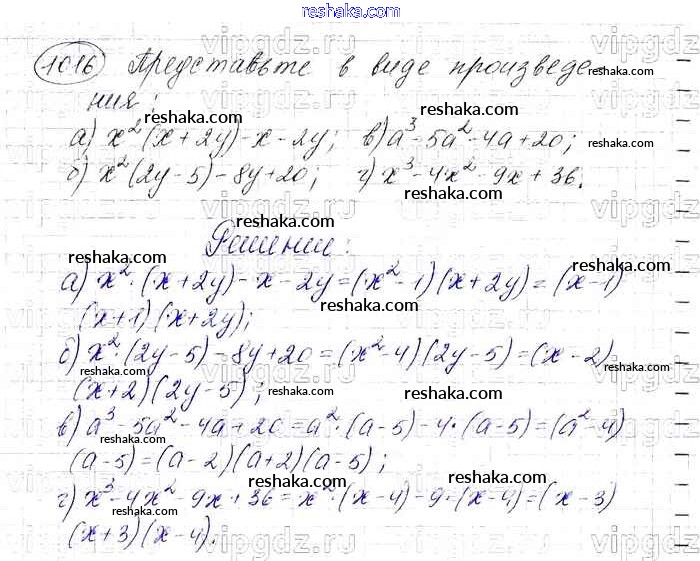 1016 Представьте в виде произведе-
ния:
а) x²(x+2y)-x-2y; в) a³-5a²-4a+20;
б) x²(2y-5)-8y+20; г) x³-4x²-9x+36.
Решение:
а) x²·(x+2y)-x-2y=(x²-1)(x+2y)=(x-1)
(x+1)(x+2y);
б) x²·(2y-5)-8y+20=(x²-4)(2y-5)=(x-2)·
(x+2)(2y-5);
в) a³-5a²-4a+20=a²·(a-5)-4·(a-5)=(a²-4)
(a-5)=(a-2)(a+2)(a-5);
г) x³-4x²-9x+36=x²·(x-4)-9·(x-4)=(x-3)
(x+3)(x-4).
reshaka.com
vipgdz.ru